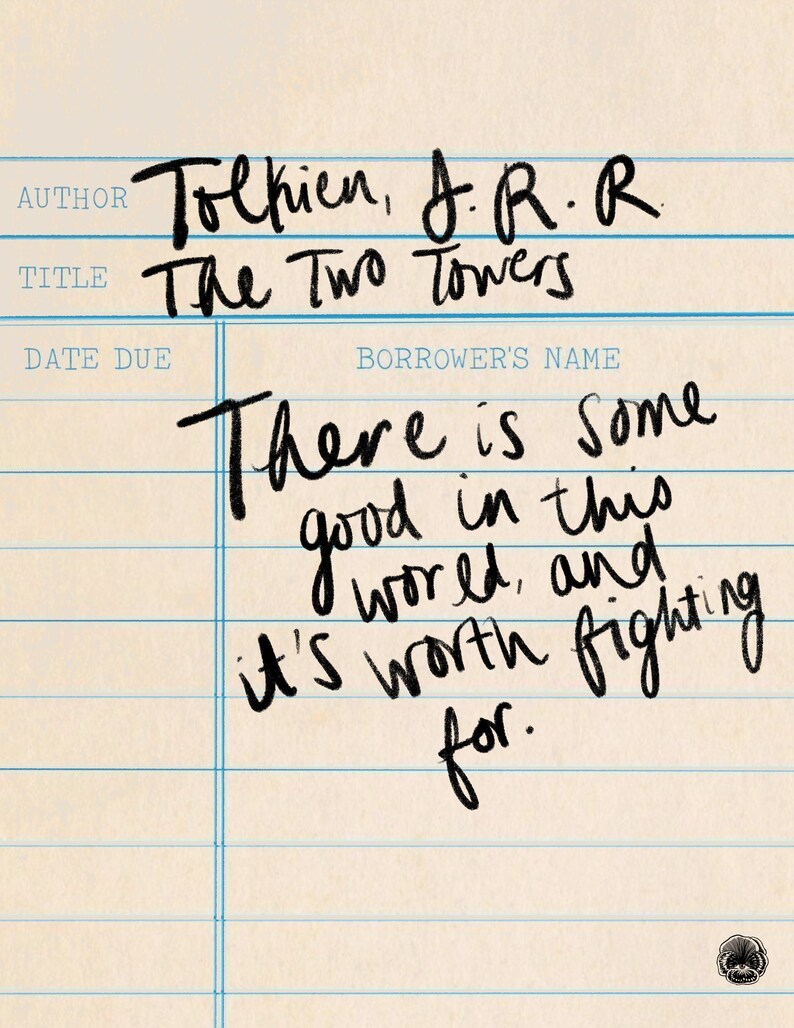 AUTHOR Tolkien, J. R. R.
TITLE The Two Towers
DATE DUE BORROWER'S NAME
There is some
good in this
world, and
it's worth fighting
for.